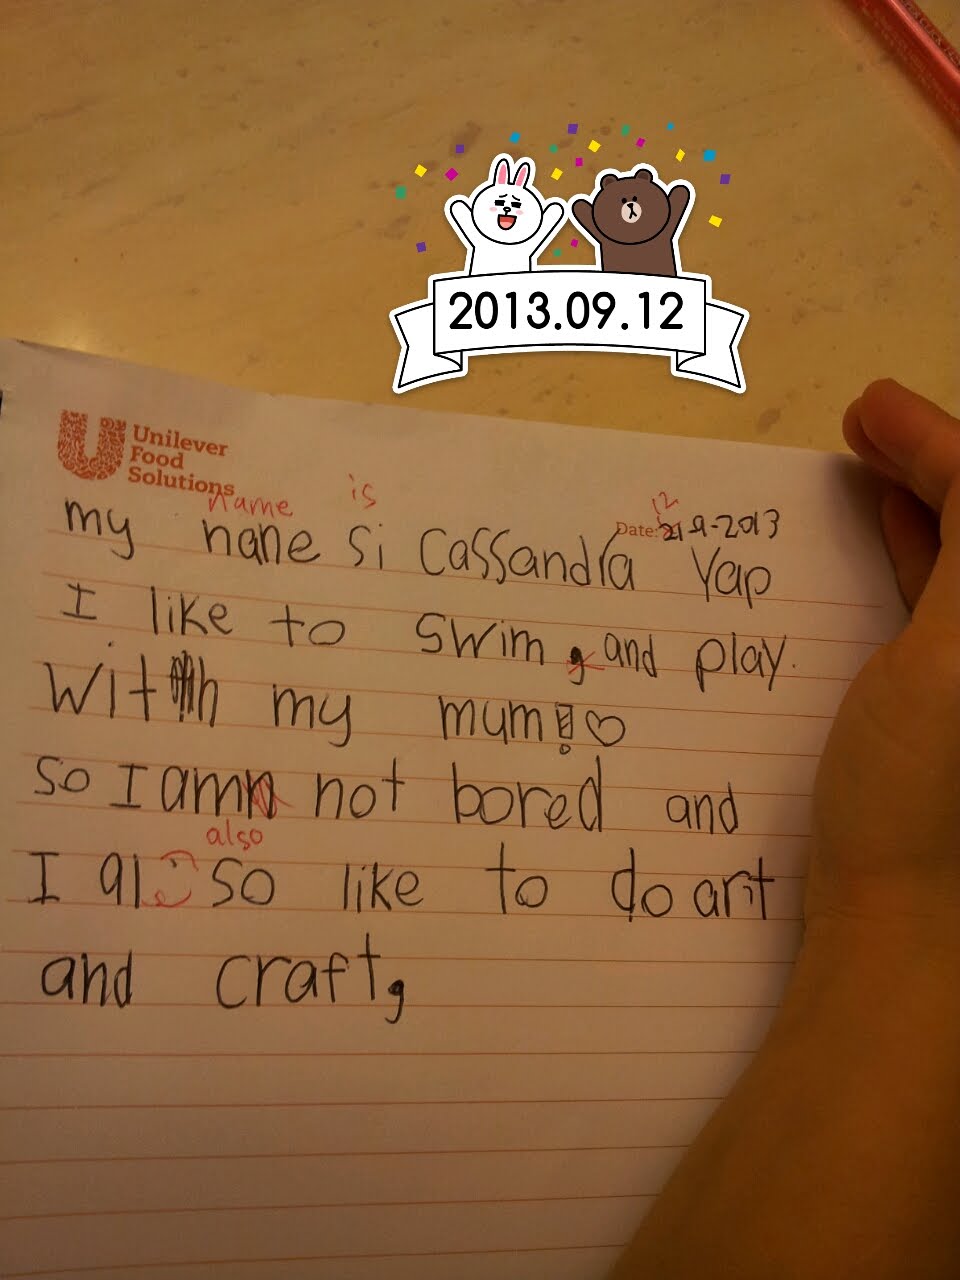 2013.09.12
Unilever
Food
Solutions
name is
12
Date: 21-9-2013
my nane si Cassandra Yap
I like to swim, and play.
With my mum! ♡
so I amn not bored and
also
I al so like to do art
and craft,